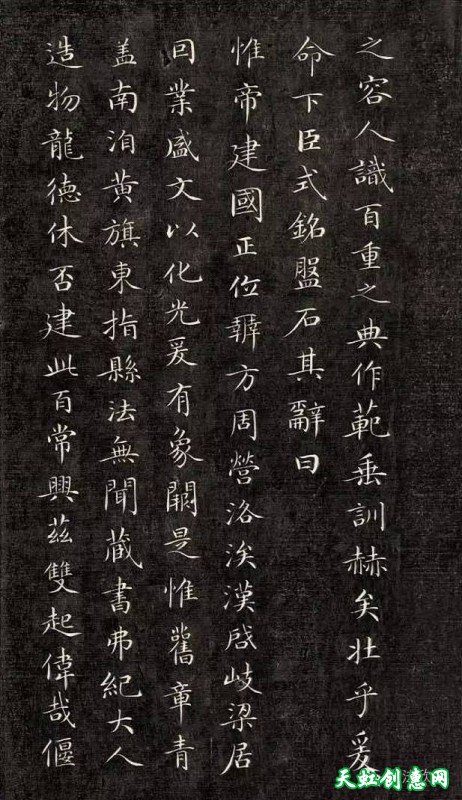 之容人識百重之典作範垂訓赫矣壯乎爰
命下臣式銘盤石其辭曰
惟帝建國正位辨方周營洛涘漢啓岐梁居
因業盛文以化光爰有象闕是惟舊章青
盖南洎黃旗東指縣法無聞藏書弗紀大人
造物龍德休否建此百常興茲雙起偉哉偃
天虹创意网